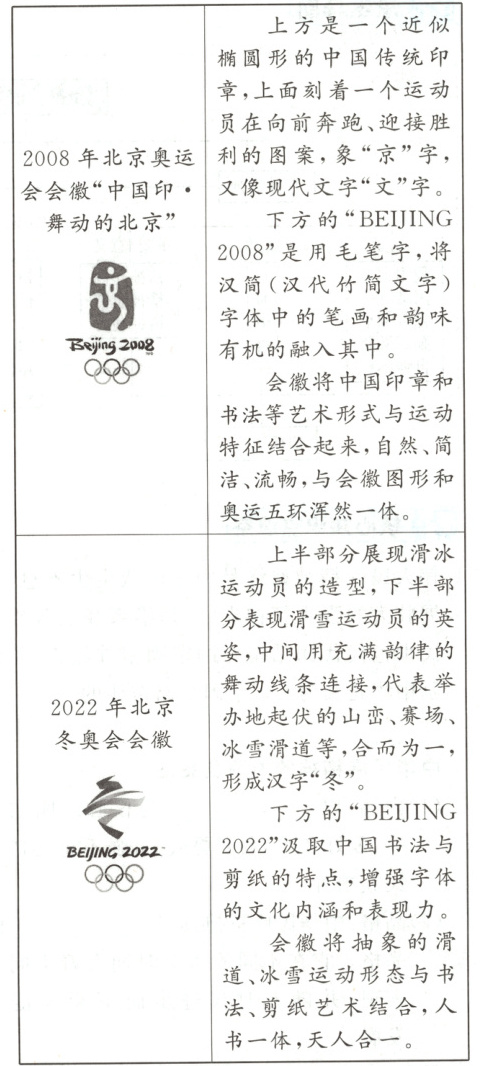 2008年北京奥运
会会徽“中国印·
舞动的北京”
Beijing 2008
上方是一个近似
椭圆形的中国传统印
章,上面刻着一个运动
员在向前奔跑、迎接胜
利的图案,象“京”字,
又像现代文字“文”字。
下方的“BEIJING
2008”是用毛笔字,将
汉简(汉代竹简文字)
字体中的笔画和韵味
有机的融入其中。
会徽将中国印章和
书法等艺术形式与运动
特征结合起来,自然、简
洁、流畅,与会徽图形和
奥运五环浑然一体。
2022年北京
冬奥会会徽
BEIJING 2022
上半部分展现滑冰
运动员的造型,下半部
分表现滑雪运动员的英
姿,中间用充满韵律的
舞动线条连接,代表举
办地起伏的山峦、赛场、
冰雪滑道等,合而为一,
形成汉字“冬”。
下方的“BEIJING
2022”汲取中国书法与
剪纸的特点,增强字体
的文化内涵和表现力。
会徽将抽象的滑
道、冰雪运动形态与书
法、剪纸艺术结合,人
书一体,天人合一。